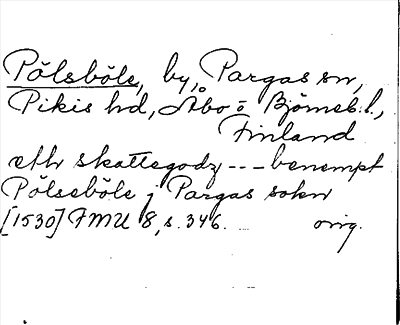 Pölsböle, by, Pargas sn,
Pikis hd, Åbo o Björneb. l.,
Finland
ethr skattegodz --- benempt
Pölseböle j Pargas sokn
[1530] FMU 8, s. 346. orig.